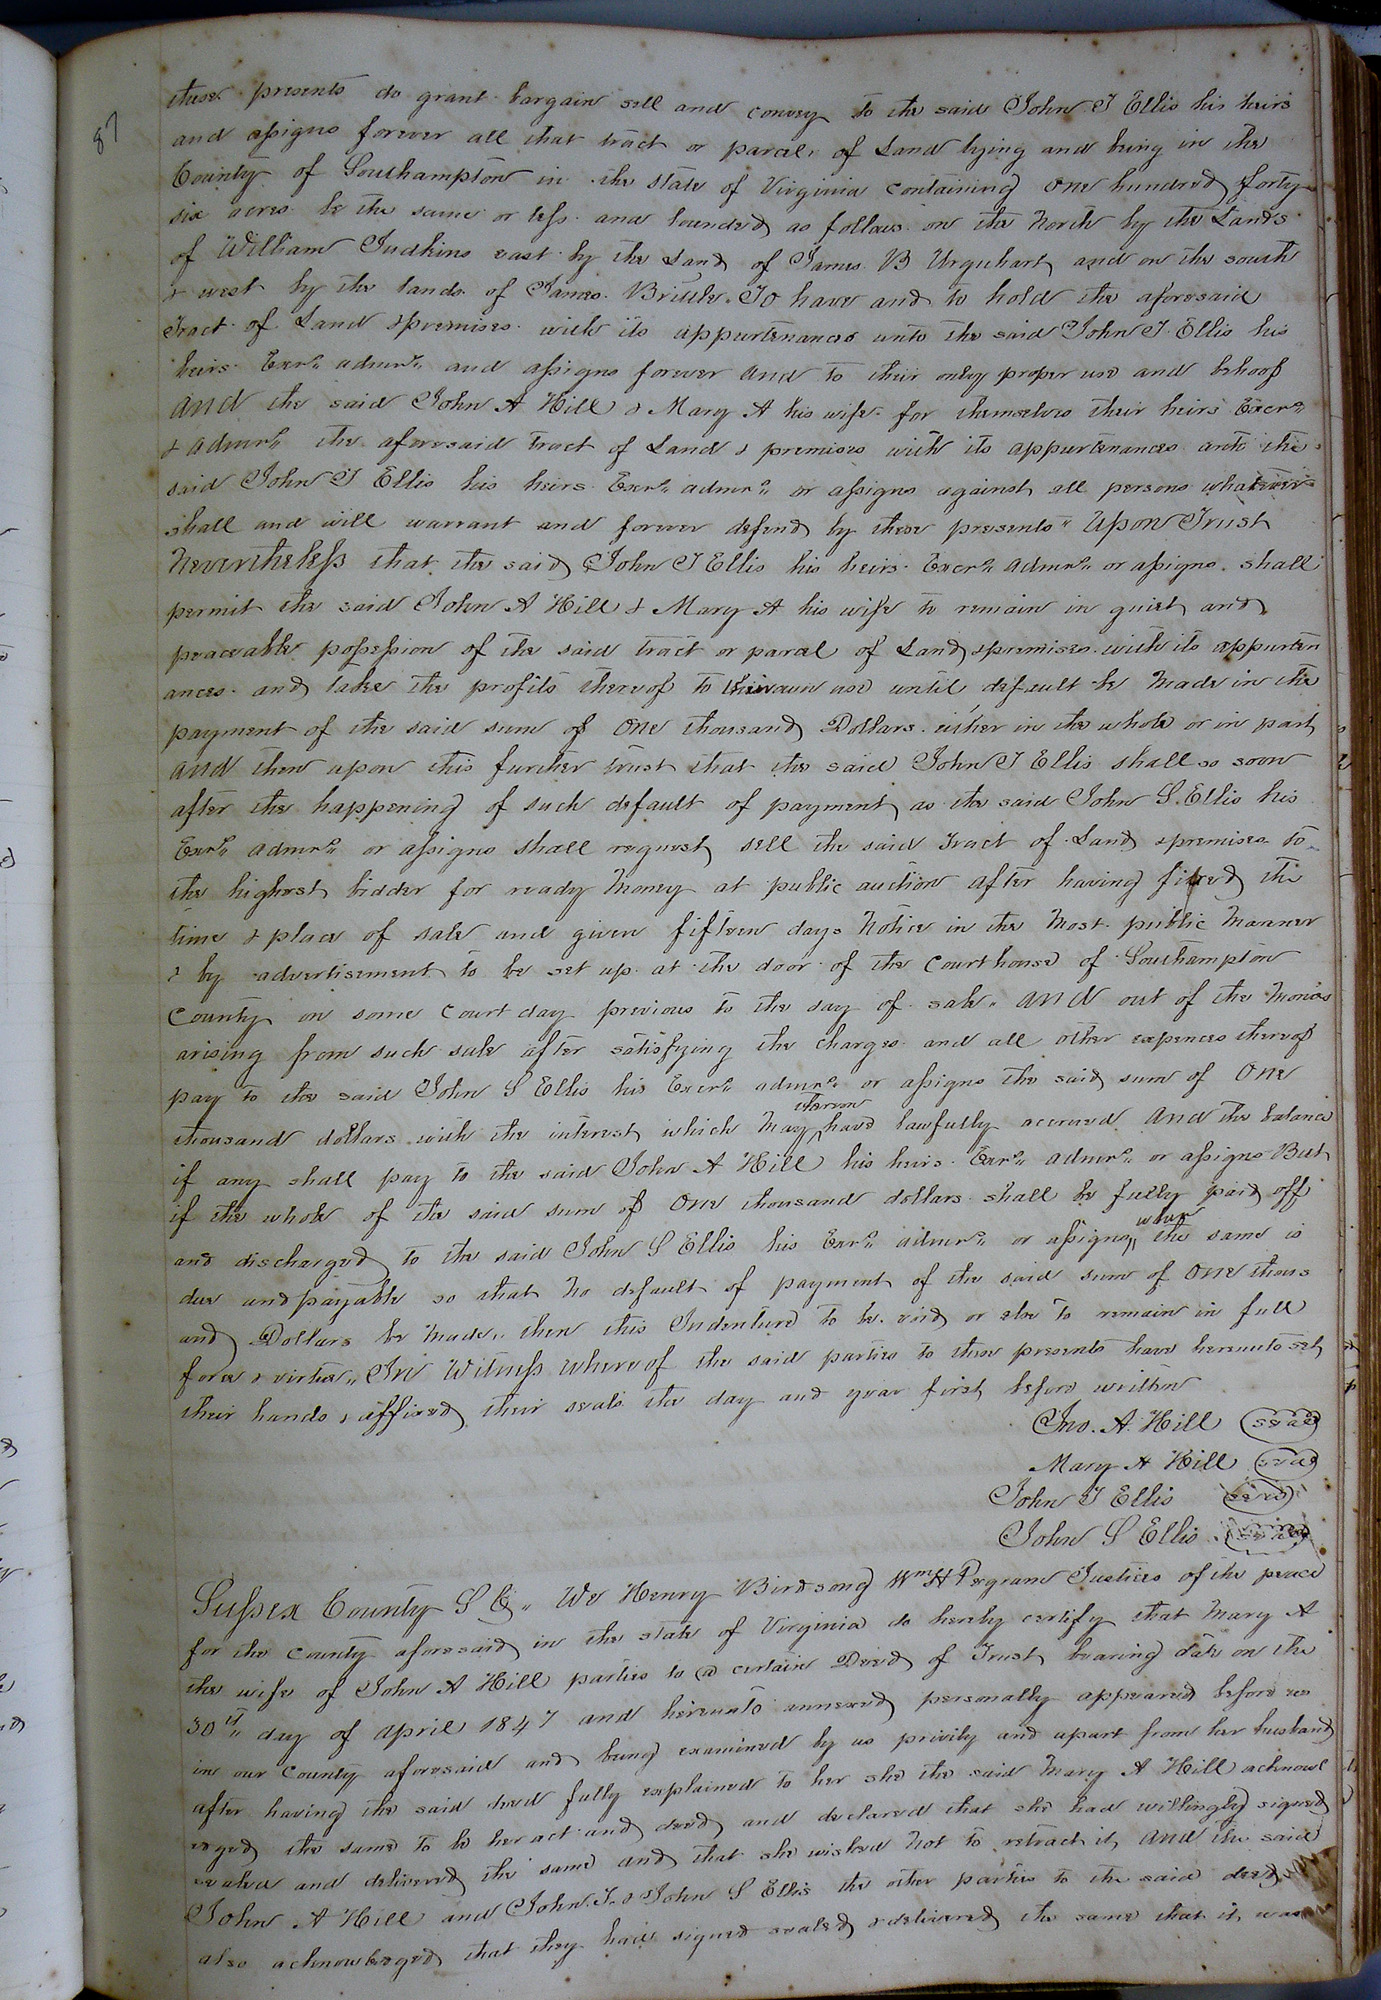 87
these presents do grant bargain sell and convey to the said John T Ellis his heirs
and assigns forever all that tract or parcel of Land lying and being in the
County of Southampton in the state of Virginia containing one hundred forty
six acres be the same or less and bounded as follows on the North by the Lands
of William Judkins east by the Land of James B Urquhart and on the south
& west by the lands of James Britt. To have and to hold the aforesaid
Tract of Land & premises with its appurtenances unto the said John T. Ellis his
heirs Exers admrs and assigns forever and to their only proper use and behoof
And the said John A Hill & Mary A his wife for themselves their heirs Execrs
& admrs the aforesaid tract of Land & premises with its appurtenances unto the
said John T Ellis his heirs Exers admrs or assigns against all persons whatever
shall and will warrant and forever defend by these presents" Upon Trust
Nevertheless that the said John T Ellis his heirs Execrs admrs or assigns shall
permit the said John A Hill & Mary A his wife to remain in quiet and
peaceable possession of the said tract or parcel of Land & premises with its appurten
ances and take the profits thereof to their own use until default be made in the
payment of the said sum of One thousand Dollars either in the whole or in part
And then upon this further trust that the said John T Ellis shall so soon
after the happening of such default of payment as the said John S. Ellis his
Exers admrs or assigns shall request, sell the said Tract of Land & premises to
the highest bidder for ready money at public auction after having fixed the
time & place of sale and given fifteen days Notice in the Most public Manner
& by advertisement to be set up at the door of the Courthouse of Southampton
County on some Court day previous to the day of sale" And out of the Monies
arising from such sale after satisfying the charges and all other expences thereof
pay to the said John S Ellis his Execrs admrs or assigns the said sum of One
thousand dollars with the interest which May thereon have lawfully accrued And the balance
if any shall pay to the said John A Hill his heirs Exers admrs or assigns But
if the whole of the said sum of One thousand dollars shall be fully paid off
and discharged to the said John S Ellis his Exers admrs or assigns when the same is
due and payable so that no default of payment of the said sum of One thous
and Dollars be made" then this Indenture to be void or else to remain in full
force & virtue" In Witness whereof the said parties to these presents have hereunto set
their hands & affixed their seals the day and year first before written
Jno. A. Hill (seal)
Mary A Hill (seal)
John T Ellis (seal)
John S Ellis (seal)
Sussex County S C" We Henry Birdsong Wm H Pegram Justices of the peace
for the County aforesaid in the state of Virginia do hereby certify that Mary A
the wife of John A Hill parties to a certain Deed of Trust bearing date on the
30th day of April 1847 and hereunto annexed personally appeared before us
in our County aforesaid and being examined by us privily and apart from her husband
after having the said deed fully explained to her she the said Mary A Hill acknowl
edged the same to be her act and deed and declared that she had willingly signed
sealed and delivered the same and that she wished not to retract it And the said
John A Hill and John T. & John S Ellis the other parties to the said deed
also acknowledged that they had signed sealed & delivered the same that it was